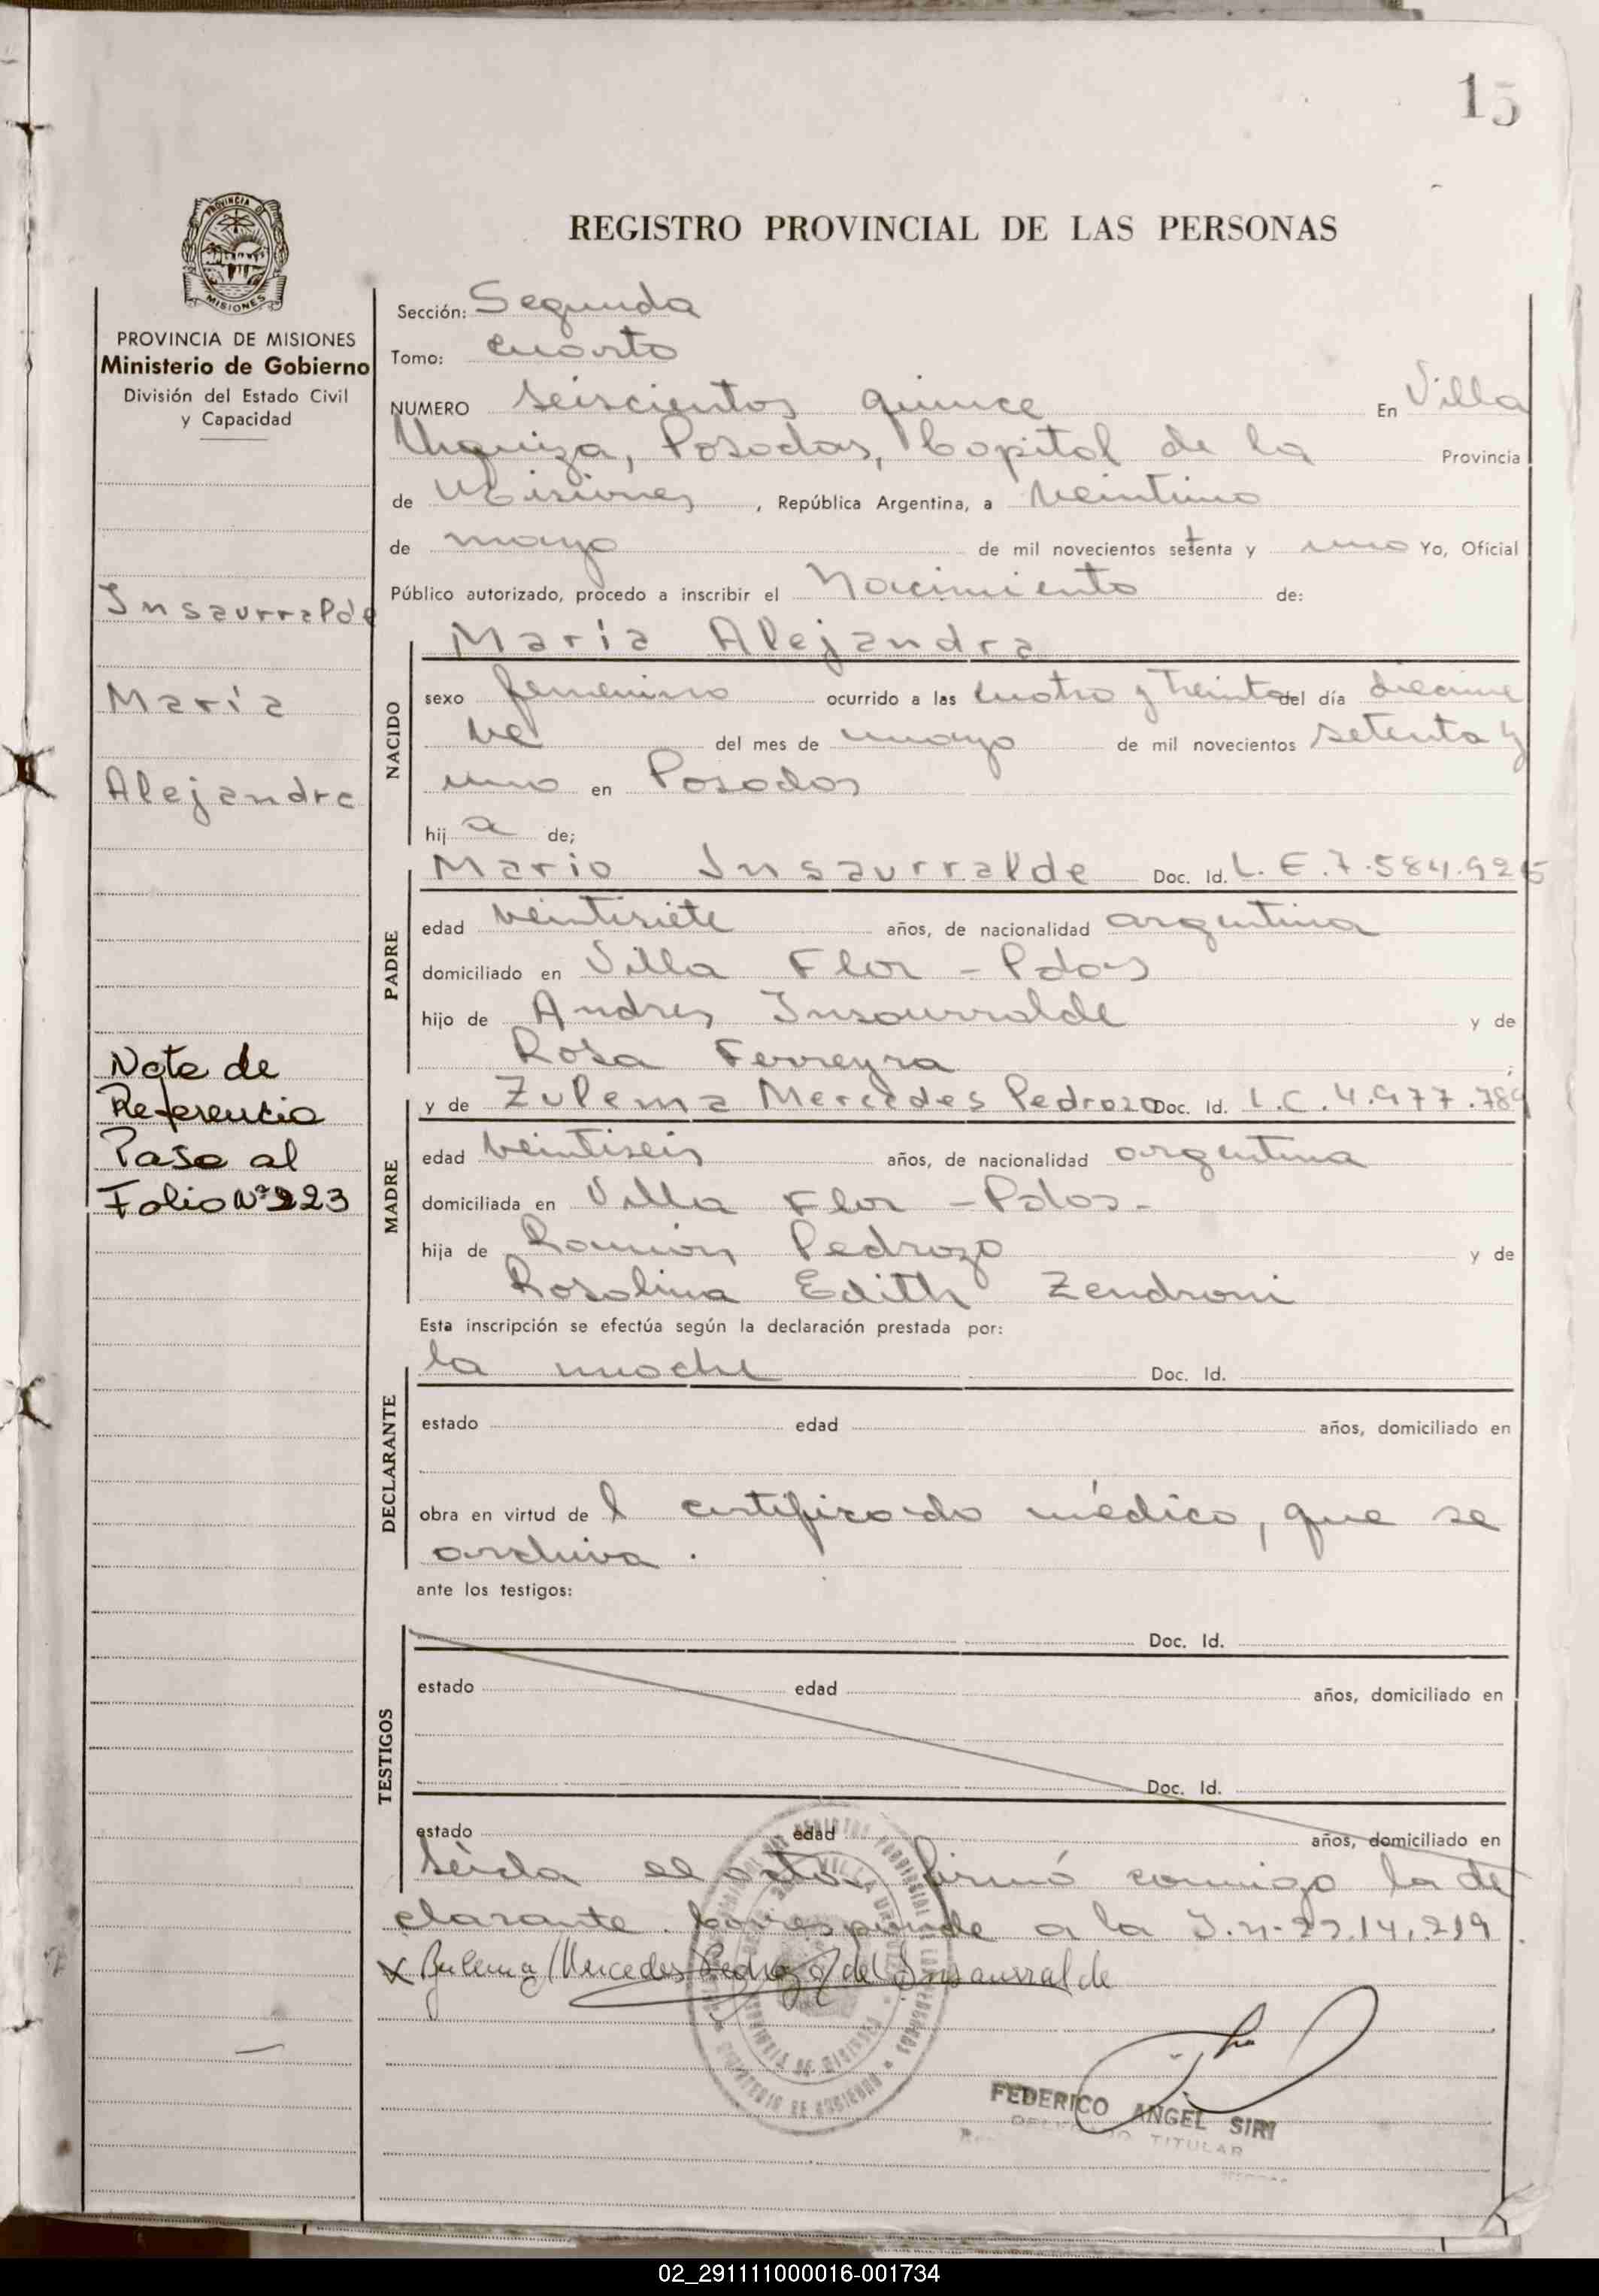 15
REGISTRO PROVINCIAL DE LAS PERSONAS
PROVINCIA DE
MISIONES
PROVINCIA DE MISIONES
Ministerio de Gobierno
División del Estado Civil
y Capacidad
Insaurralde
María
Alejandra
Nota de
Referencia
Pasa al
Folio Nº 223
Sección: Segunda
Tomo: cuarto
NUMERO seiscientos quince En Villa
Urquiza, Posadas, Capital de la Provincia
de Misiones, República Argentina, a veintiuno
de mayo de mil novecientos setenta y uno Yo, Oficial
Público autorizado, procedo a inscribir el Nacimiento de:
NACIDO
María Alejandra
sexo femenino ocurrido a las cuatro y treinta del día diecinue
ve del mes de mayo de mil novecientos setenta y
uno en Posadas
hij a de;
PADRE
Mario Insaurralde Doc. Id. L. E. 7.584.926
edad veintisiete años, de nacionalidad argentina
domiciliado en Villa Flor - Pdas
hijo de Andres Insaurralde y de
Rosa Ferreyra
MADRE
y de Zulema Mercedes Pedrozo Doc. Id. L.C. 4.977.789
edad veintiseis años, de nacionalidad argentina
domiciliada en Villa Flor - Pdas.-
hija de Ramón Pedrozo y de
Rosalina Edith Zendroni
Esta inscripción se efectúa según la declaración prestada por:
DECLARANTE
la madre Doc. Id.
estado edad años, domiciliado en
obra en virtud de l certificado médico, que se
archiva.
ante los testigos:
TESTIGOS
Doc. Id.
estado edad años, domiciliado en
Doc. Id.
estado edad años, domiciliado en
Leída el acta, firmó conmigo la de
clarante. Corresponde a la I.n-22.14.219.
x Zulema Mercedes Pedrozo de Insaurralde
FEDERICO ANGEL SIRI
DELEGADO TITULAR
02_291111000016-001734